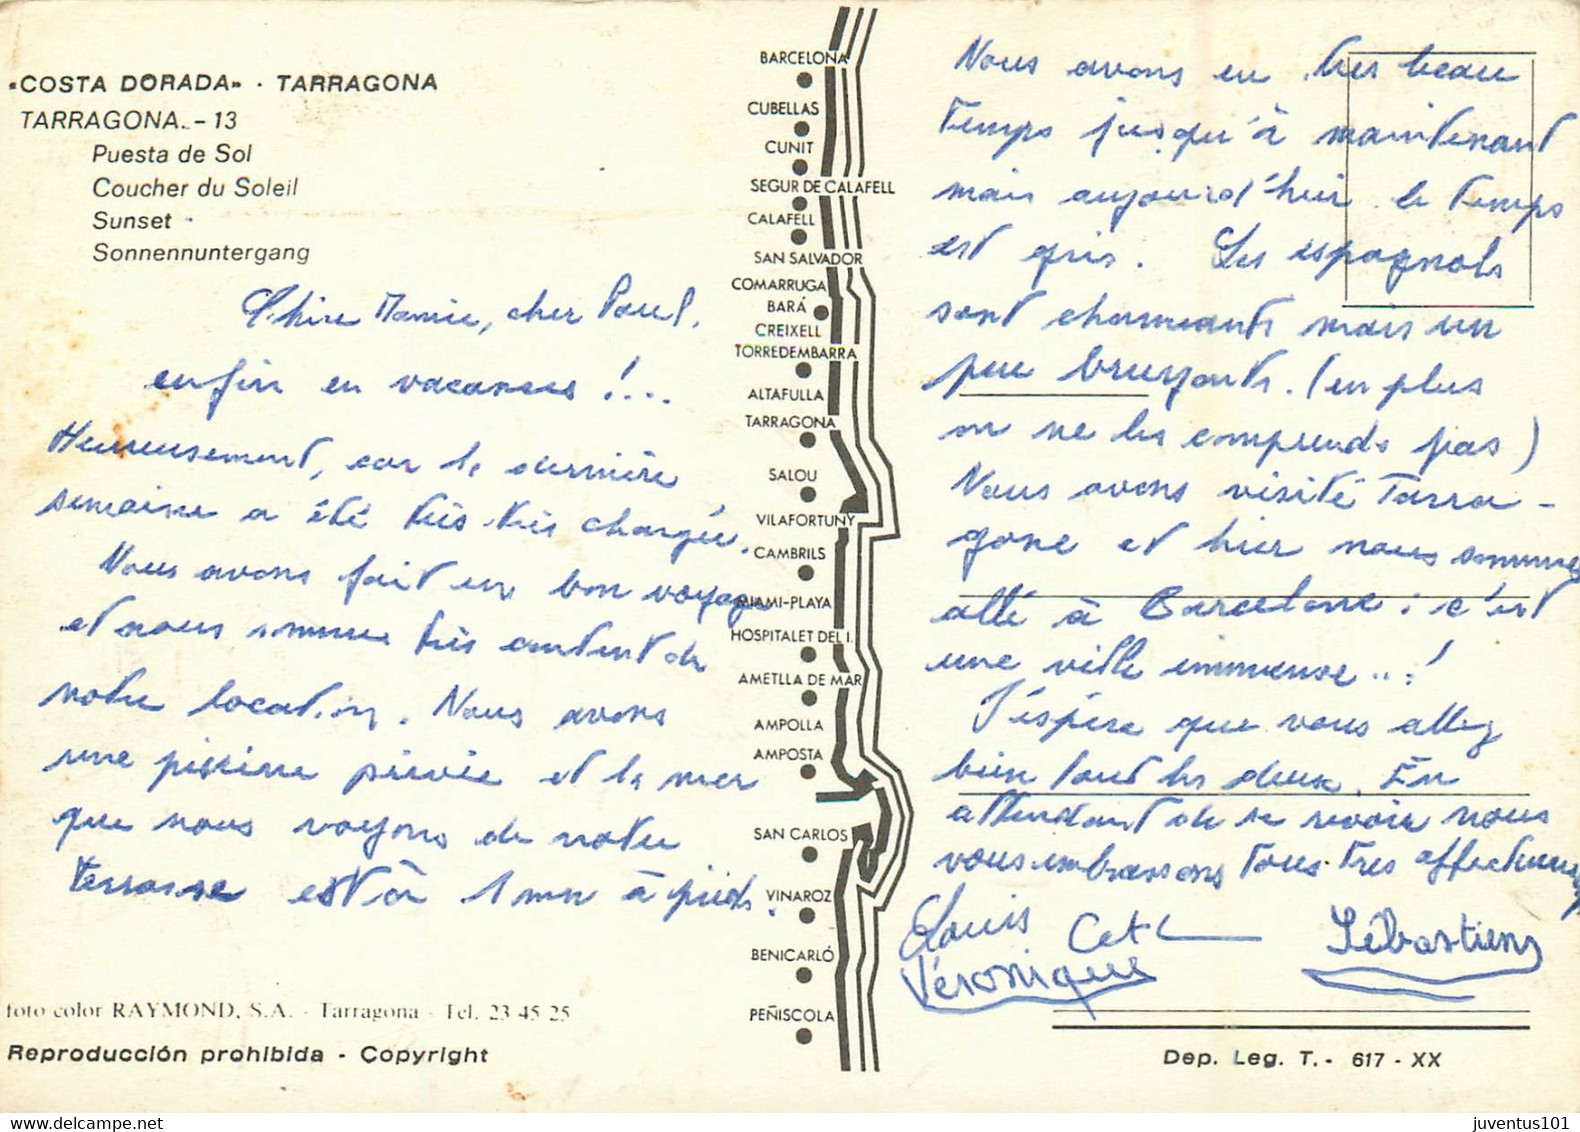 «COSTA DORADA» · TARRAGONA
TARRAGONA. – 13
Puesta de Sol
Coucher du Soleil
Sunset
Sonnenuntergang
Chère Mamie, cher Paul,
enfin en vacances !...
Heureusement, car la dernière
semaine a été très très chargée.
Nous avons fait un bon voyage
et nous sommes très content de
notre location. Nous avons
une piscine privée et la mer
que nous voyons de notre
terrasse est à 1 mn à pieds.
foto color RAYMOND, S.A. - Tarragona - Tel. 23 45 25
Reproducción prohibida - Copyright
BARCELONA
CUBELLAS
CUNIT
SEGUR DE CALAFELL
CALAFELL
SAN SALVADOR
COMARRUGA
BARÁ
CREIXELL
TORREDEMBARRA
ALTAFULLA
TARRAGONA
SALOU
VILAFORTUNY
CAMBRILS
MIAMI-PLAYA
HOSPITALET DEL I.
AMETLLA DE MAR
AMPOLLA
AMPOSTA
SAN CARLOS
VINAROZ
BENICARLÓ
PEÑISCOLA
Nous avons eu très beau
temps jusqu'à maintenant
mais aujourd'hui le temps
est gris. Les espagnols
sont charmants mais un
peu bruyants. (en plus
on ne les comprends pas)
Nous avons visité Tarra-
gone et hier nous sommes
allé à Barcelone : c'est
une ville immense ..!
J'espère que vous allez
bien tout les deux. En
attendant de se revoir nous
vous embrassons tous très affectueus
Louis Cath Sébastien
Véronique
Dep. Leg. T. - 617 - XX
juventus101